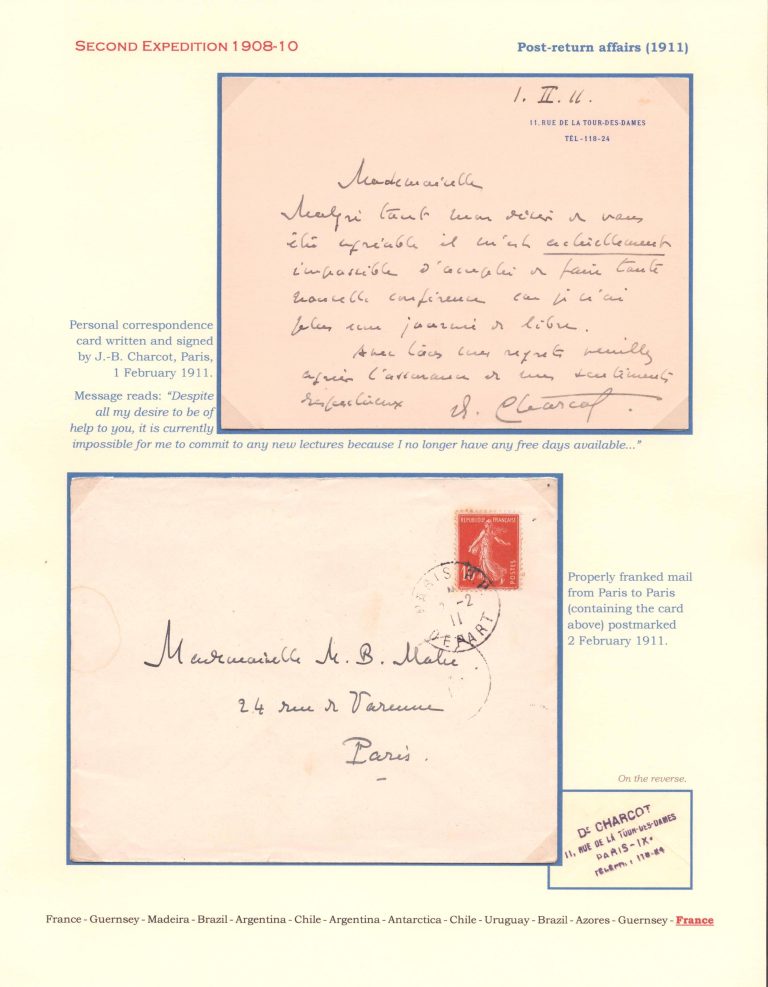 SECOND EXPEDITION 1908-10
Post-return affairs (1911)
1. II. 11.
11, RUE DE LA TOUR-DES-DAMES
TÉL - 118-24
Mademoiselle
Malgré tout mon désir de vous
être agréable il m'est actuellement
impossible d'accepter de faire toute
nouvelle conférence car je n'ai
plus une journée de libre.
Avec tous mes regrets veuillez
agréer l'assurance de mes sentiments
respectueux
Charcot
Personal correspondence
card written and signed
by J.-B. Charcot, Paris,
1 February 1911.
Message reads: “Despite
all my desire to be of
help to you, it is currently
impossible for me to commit to any new lectures because I no longer have any free days available...”
REPUBLIQUE FRANÇAISE
10
POSTES
PARIS
2 -2
11
DEPART
Mademoiselle M. B.
24 rue de Varenne
Paris.
Properly franked mail
from Paris to Paris
(containing the card
above) postmarked
2 February 1911.
On the reverse.
Dr CHARCOT
11, RUE DE LA TOUR-DES-DAMES
PARIS-IXe
TÉLÉPH: 118-24
France - Guernsey - Madeira - Brazil - Argentina - Chile - Argentina - Antarctica - Chile - Uruguay - Brazil - Azores - Guernsey - France